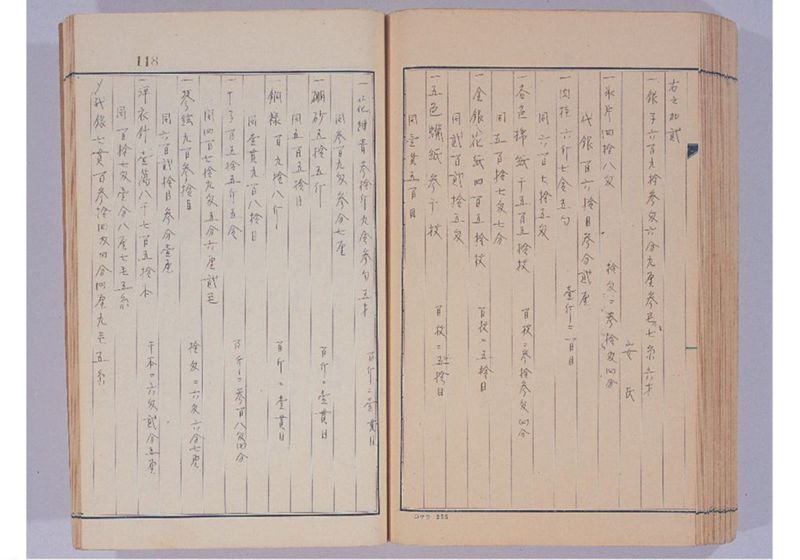 右之外ニ
一銀子六百九拾参匁六分九厘参毛七糸六才
安氏
一氷片四拾八匁 拾匁ニ参拾参匁四分
代銀百六拾目参分弐厘
一肉桂六斤七合五勺 壱斤ニ百目
同六百七拾五匁
一各色棉紙千五百五拾枚 百枚ニ参拾参匁四分
同五百拾七匁七分
一金銀花紙四百五拾枚 百枚ニ五拾目
同弐百弐拾五匁
一五色蝋紙参千枚 百枚ニ五拾目
同壱貫五百目
118
一花紺青参拾斤九合参勺五才 百斤ニ壱貫目
同参百九匁参分七厘
一硼砂五拾五斤 百斤ニ壱貫目
同五百五拾目
一銅緑百九拾八斤 百斤ニ壱貫目
同壱貫九百八拾目
一干子百五拾五斤五合 百斤ニ参百八匁四分
同四百七拾九匁五分六厘弐毛
一琴絃九百参拾目 拾匁ニ六匁六分七厘
同六百弐拾目参分壱厘
一洋衣針壱萬八千七百五拾本 千本ニ六匁弐分五厘
同百拾七匁壱分八厘七毛五糸
〆代銀七貫百参拾四匁四分四厘九毛五糸
コクヨ 255